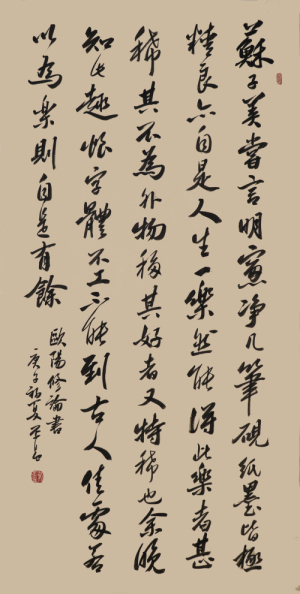 蘇子美嘗言明窻净几筆硯紙墨皆極
精良亦自是人生一樂然能得此樂者甚
稀其不為外物移其好者又特稀也余晚
知此趣恨字體不工不能到古人佳處若
以為樂則自是有餘
歐陽修論書
庚子初夏